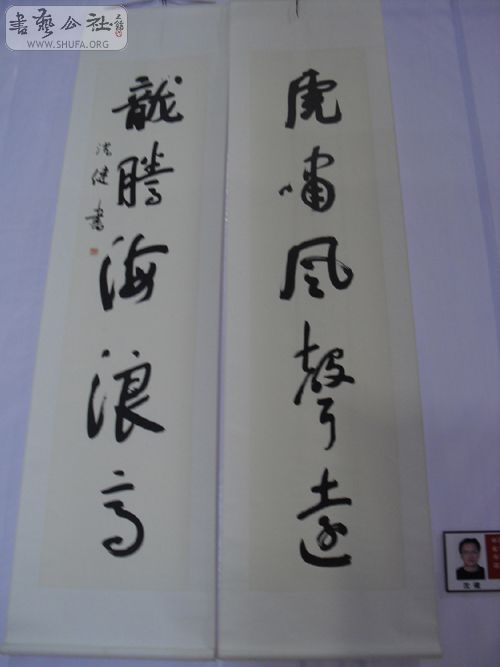 書藝公社
WWW.SHUFA.ORG
虎嘯風聲遠
龍騰海浪高
沈健書